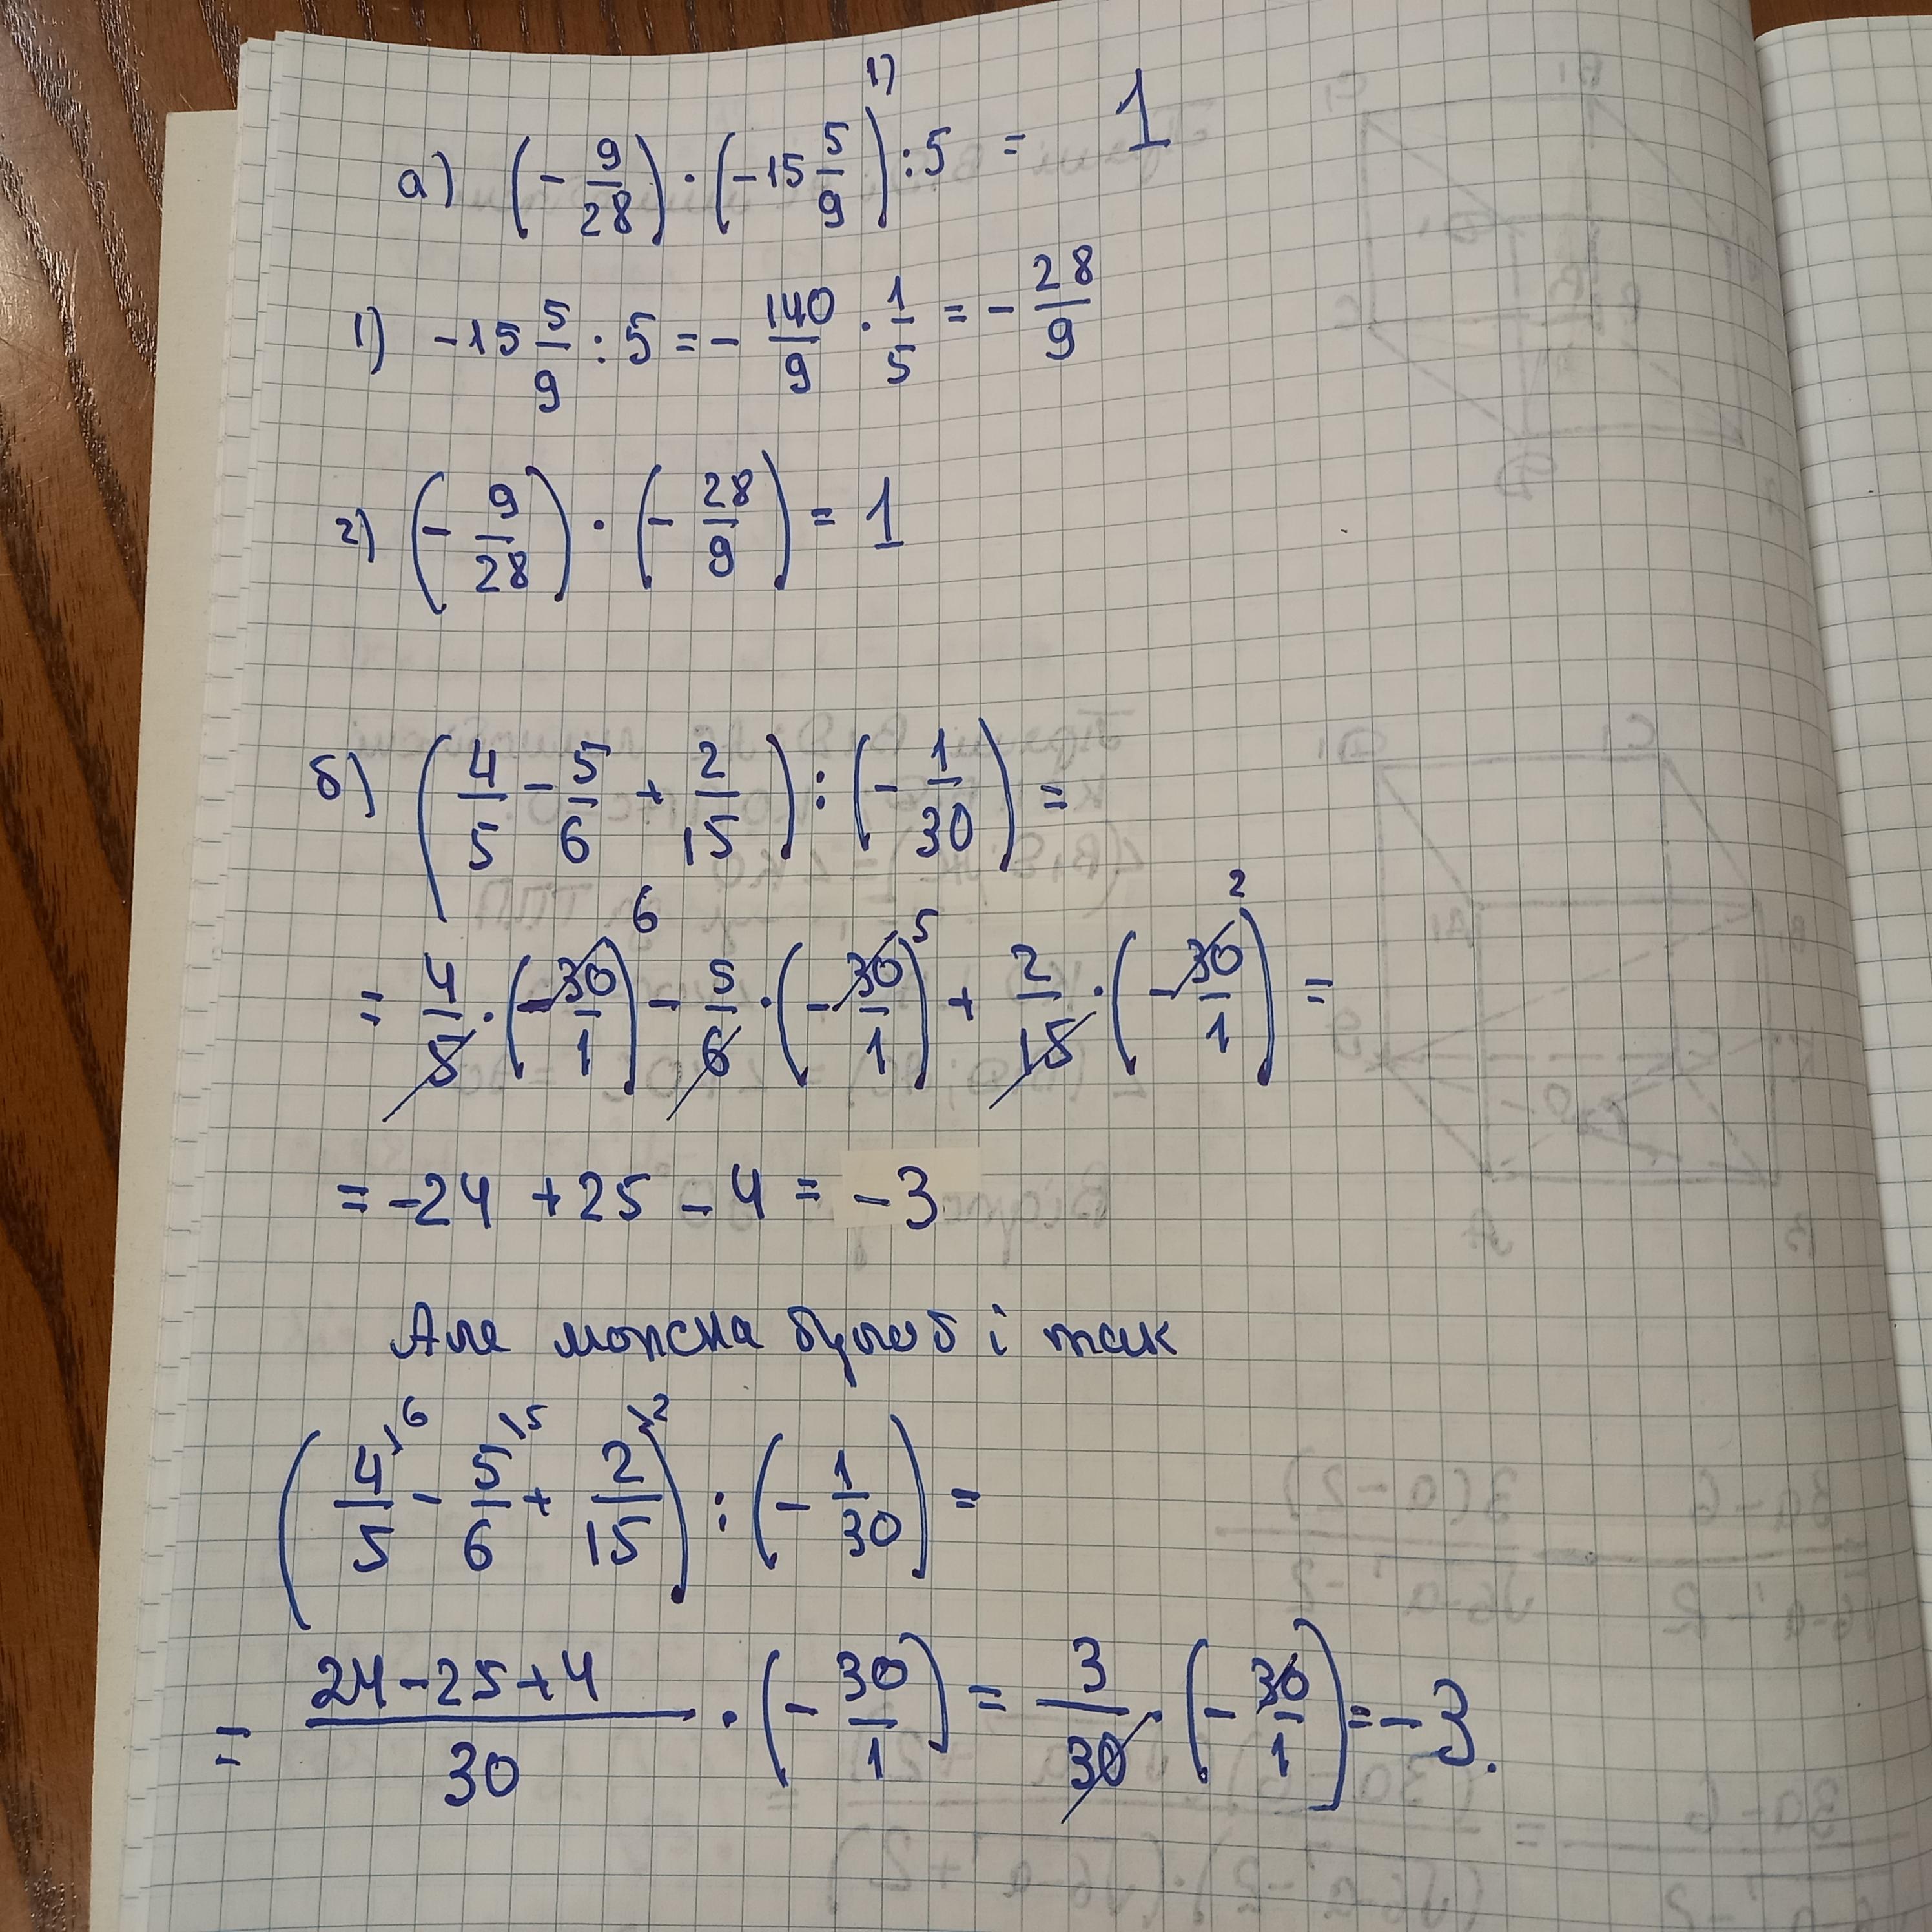 1)
а) (- 9/28) · (-15 5/9) : 5 = 1
1) -15 5/9 : 5 = - 140/9 · 1/5 = - 28/9
2) (- 9/28) · (- 28/9) = 1
б) (4/5 - 5/6 + 2/15) : (- 1/30) =
= 4/5 · (- 30/1) 6 - 5/6 · (- 30/1) 5 + 2/15 · (- 30/1) 2 =
= -24 + 25 - 4 = -3
Але можна було б і так
(4/5 \6 - 5/6 \5 + 2/15 \2) : (- 1/30) =
= (24-25+4)/30 · (- 30/1) = 3/30 · (- 30/1) = -3.